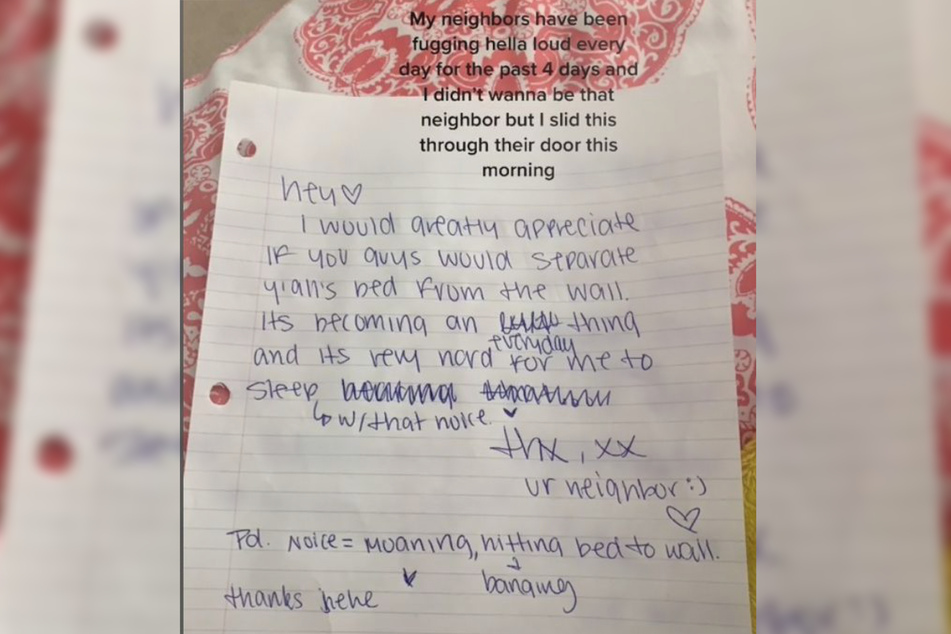 My neighbors have been
fugging hella loud every
day for the past 4 days and
I didn't wanna be that
neighbor but I slid this
through their door this
morning
hey♡
I would greatly appreciate
If you guys would separate
y'all's bed from the wall.
Its becoming an thing
everyday
and its very hard for me to
sleep
↳ w/that noise.
thx, xx
ur neighbor:)
♡
Pd. Noice = Moaning, hitting bed to wall.
banging
thanks hehe